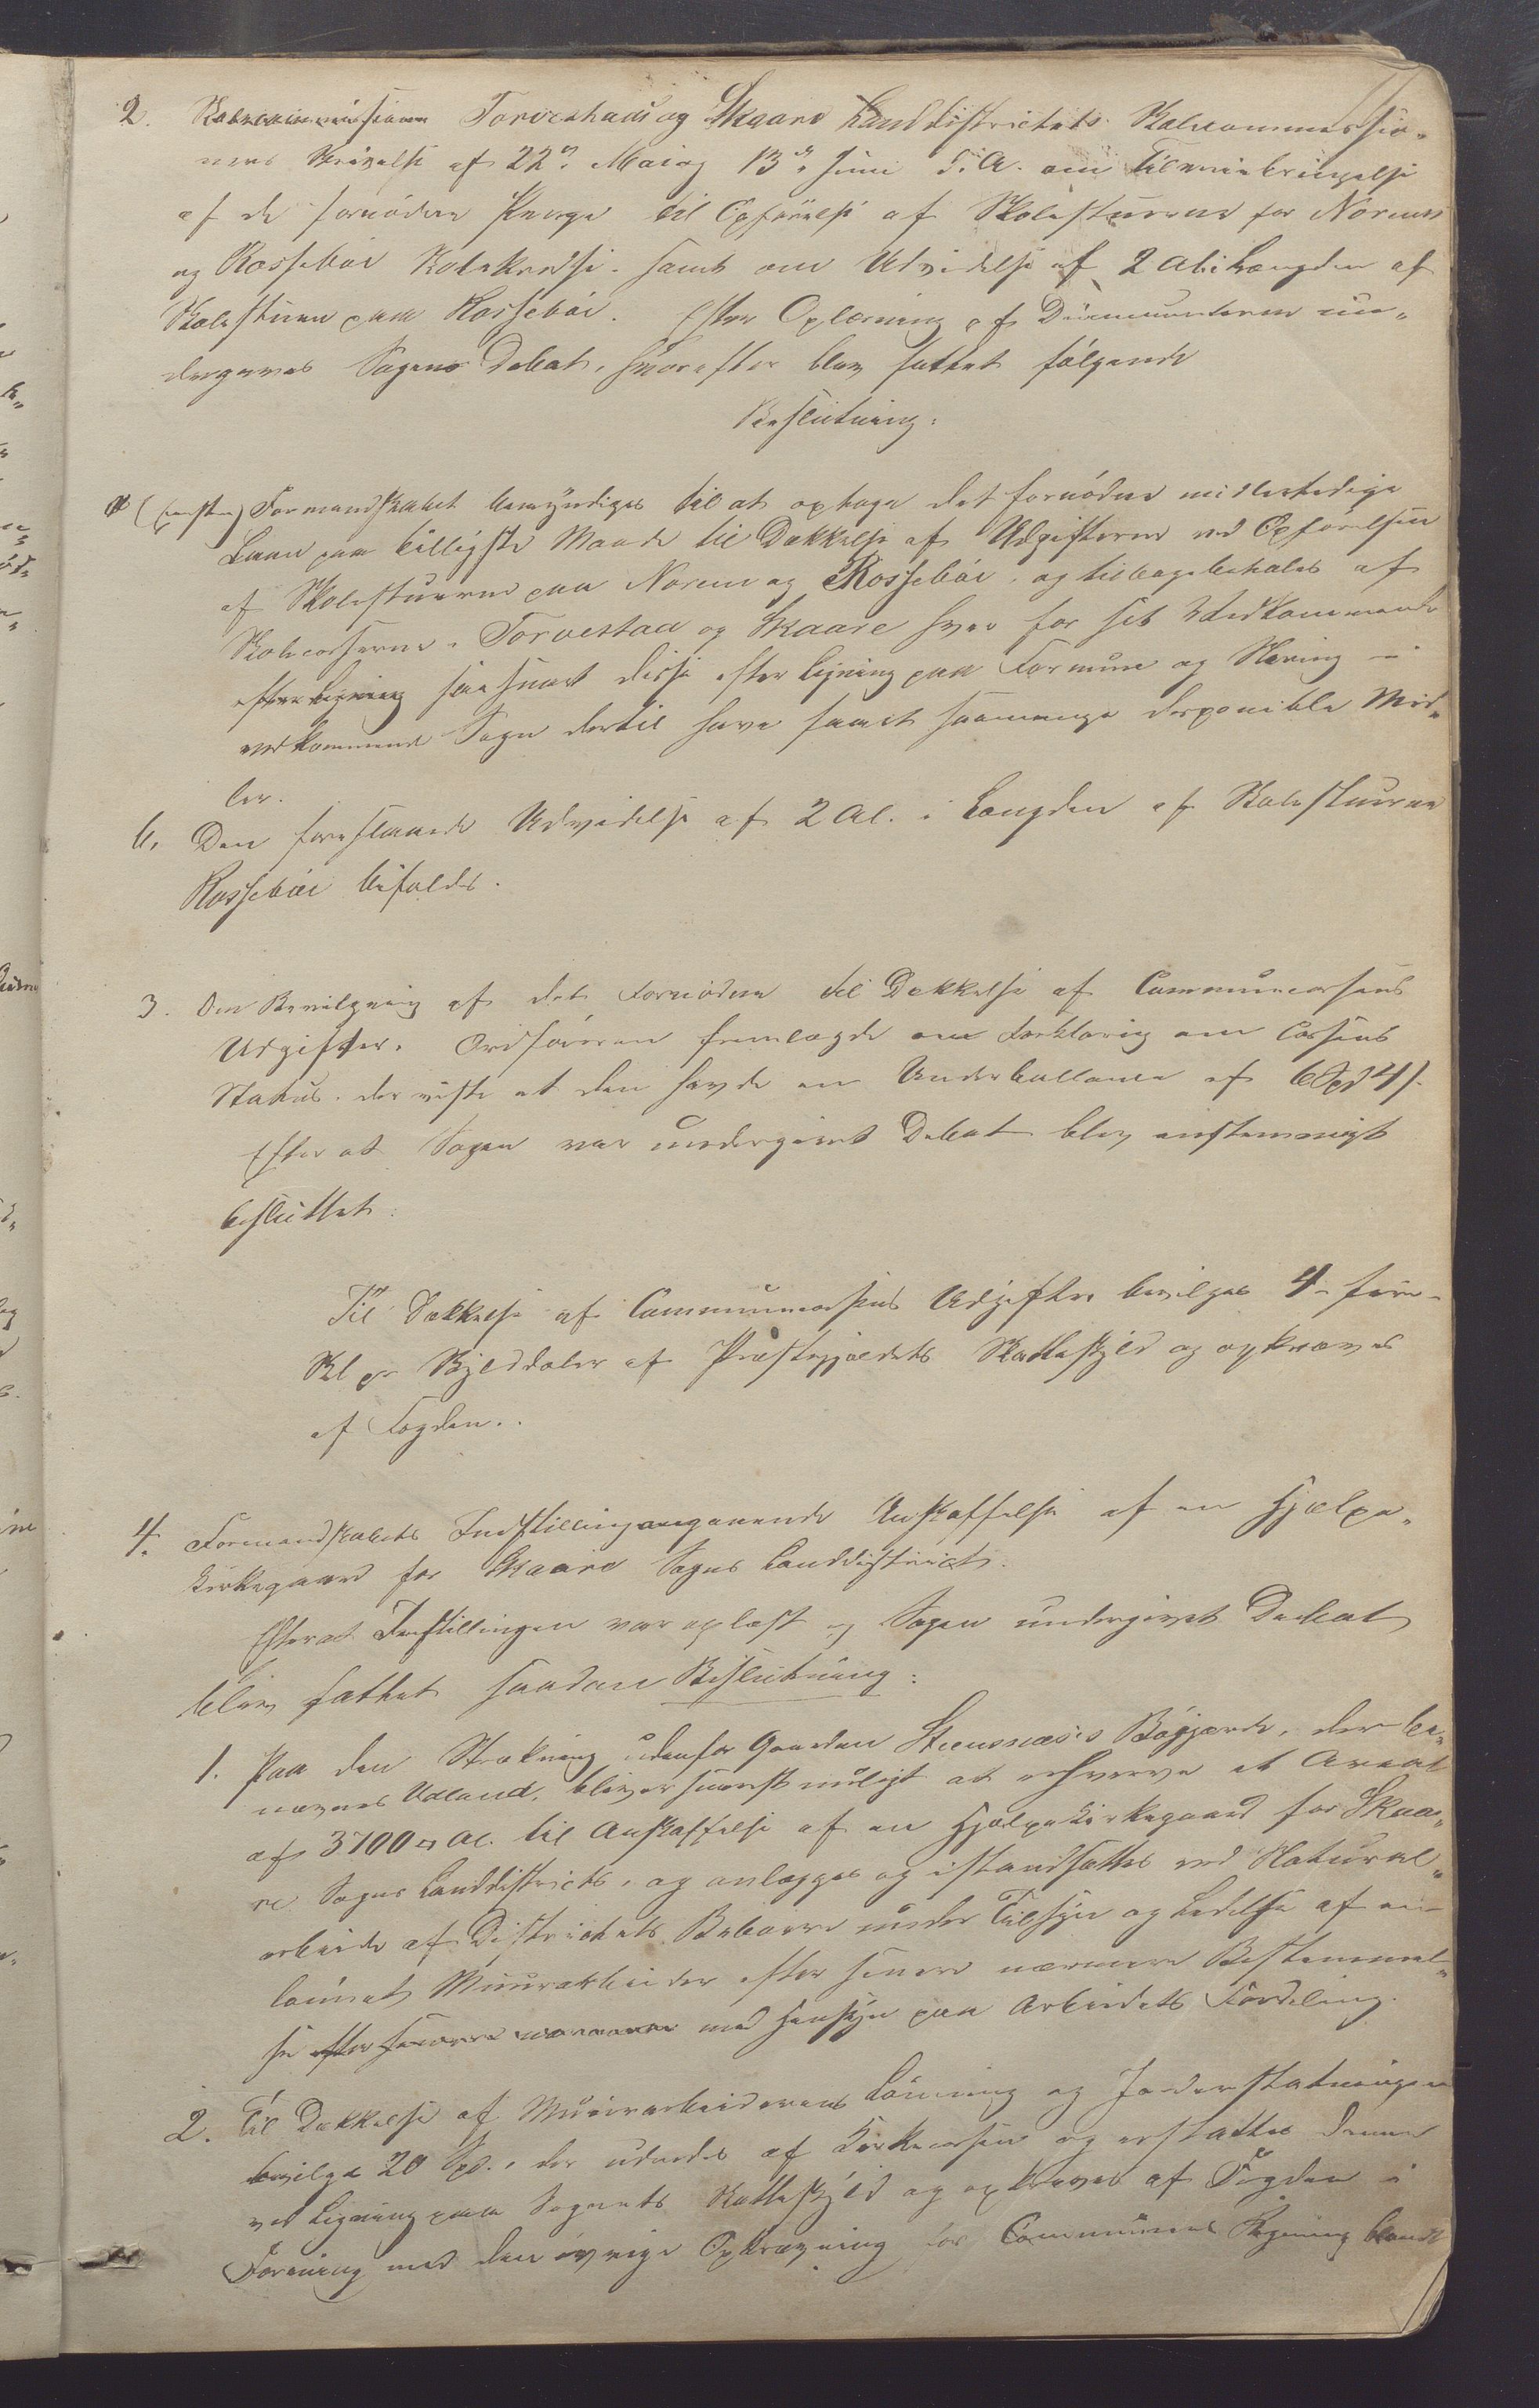 2. Skolecommissionen Torvestads og Skaare Landdistrikts Skolecommissio„
ners Skrivelse af 22de Mai og 13de Juni d. A. om Tilveiebringelse
af de fornödne Penge til Opförelse af Skolestuerne for Noreim
og Rosseböe Skolekredse. samt om Udvidelse af 2 Al. i Længden af
Skolestuen paa Rosseböe. Efter Oplæsning af Documenterne un„
dergaves Sagen Debat, hvorefter blev fattet fölgende
Beslutning:
a (Eenst) Formandskabet bemyndiges til at optage det fornödne midlertidige
Laan paa billigste Maade til Dækkelse af Udgifterne ved Opförelsen
af Skolestuerne paa Noreim og Rosseböe, og tilbagebetales af
Skolecasserne i Torvestad og Skaare hver for sit Vedkommende
efter Ligning saasnart disse efter Ligning paa Formue og Næring i
vedkommende Sogn dertil have faaet saamange disponible Mid„
ler.
b. Den foreslaaede Udvidelse af 2 Al. i Længden af Skolestuerne
Rosseböe bifaldes.
3. Om Bevilgning af det Fornödne til Dækkelse af Communecassens
Udgifter. Ordföreren fremlagde en Forklaring om Cassens
Status, der viste at den havde en Underballance af 6 Spd 4 ſ.
Efter at Sagen var undergivet Debat blev enstemmigt
besluttet:
Til Dækkelse af Communecassens Udgifter bevilges 4 - fire -
Sk pr Skylddaler af Præstegjældets Matteskyld og opkræves
af Fogden.
4. Formandskabets Indstilling angaaende Anskaffelse af en Hjælpe„
kirkegaard for Skaare Sogns Landdistrict.
Efterat Indstillingen var oplæst og Sagen undergivet Debat
blev fattet saadan Beslutning:
1. Paa den Strækning udenfor Gaarden Steensnæs's Bögjærde, der be„
nævnes Udland, bliver snarest muligt at erhverve et Areal
af 3700 □ Al. til Anskaffelse af en Hjælpekirkegaard for Skaa„
re Sogns Landdistricts, og anlægges og istandsættes ved Natural„
arbeide af Districtets Beboere under Tilsyn og Ledelse af en
lönnet Muurarbeider efter senere nærmere Bestemmel„
se efter senere nærmere med Hensyn paa Arbeidets Fordeling.
2. Til Dækkelse af Muurarbeiderens Lönning og Jorderstatningen
bevilges 20 Spd., der udredes af Kirkecassen og erstattes denne
ved Ligning paa Sognets Matteskyld og opkræves af Fogden i
Forening med den övrige Opkrævning for Communens Regning blandt